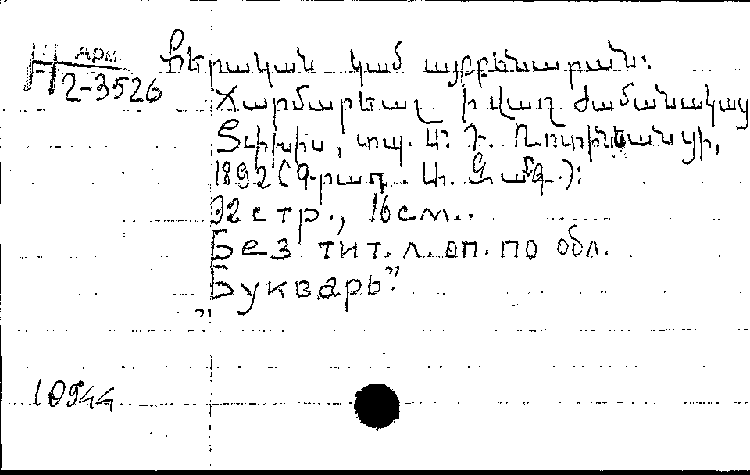 Арм
Н
2-3526
Քերական կամ այբբենարան:
Յարմարեալ ի վաղ ժամանակաց
Տփխիս, տպ. Մ. Դ. Ռոտինեանցի,
1892 (Գրավ. Ա. Զամգ.):
32 стр., 16 см..
Без тит. л. оп. по обл.
"Букварь"
10944